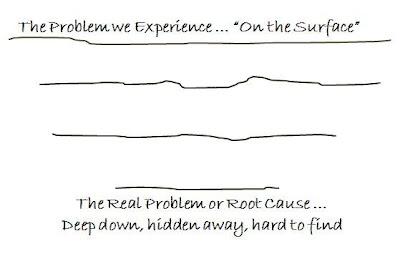 The Problem we Experience ... "On the Surface"
The Real Problem or Root Cause ...
Deep down, hidden away, hard to find